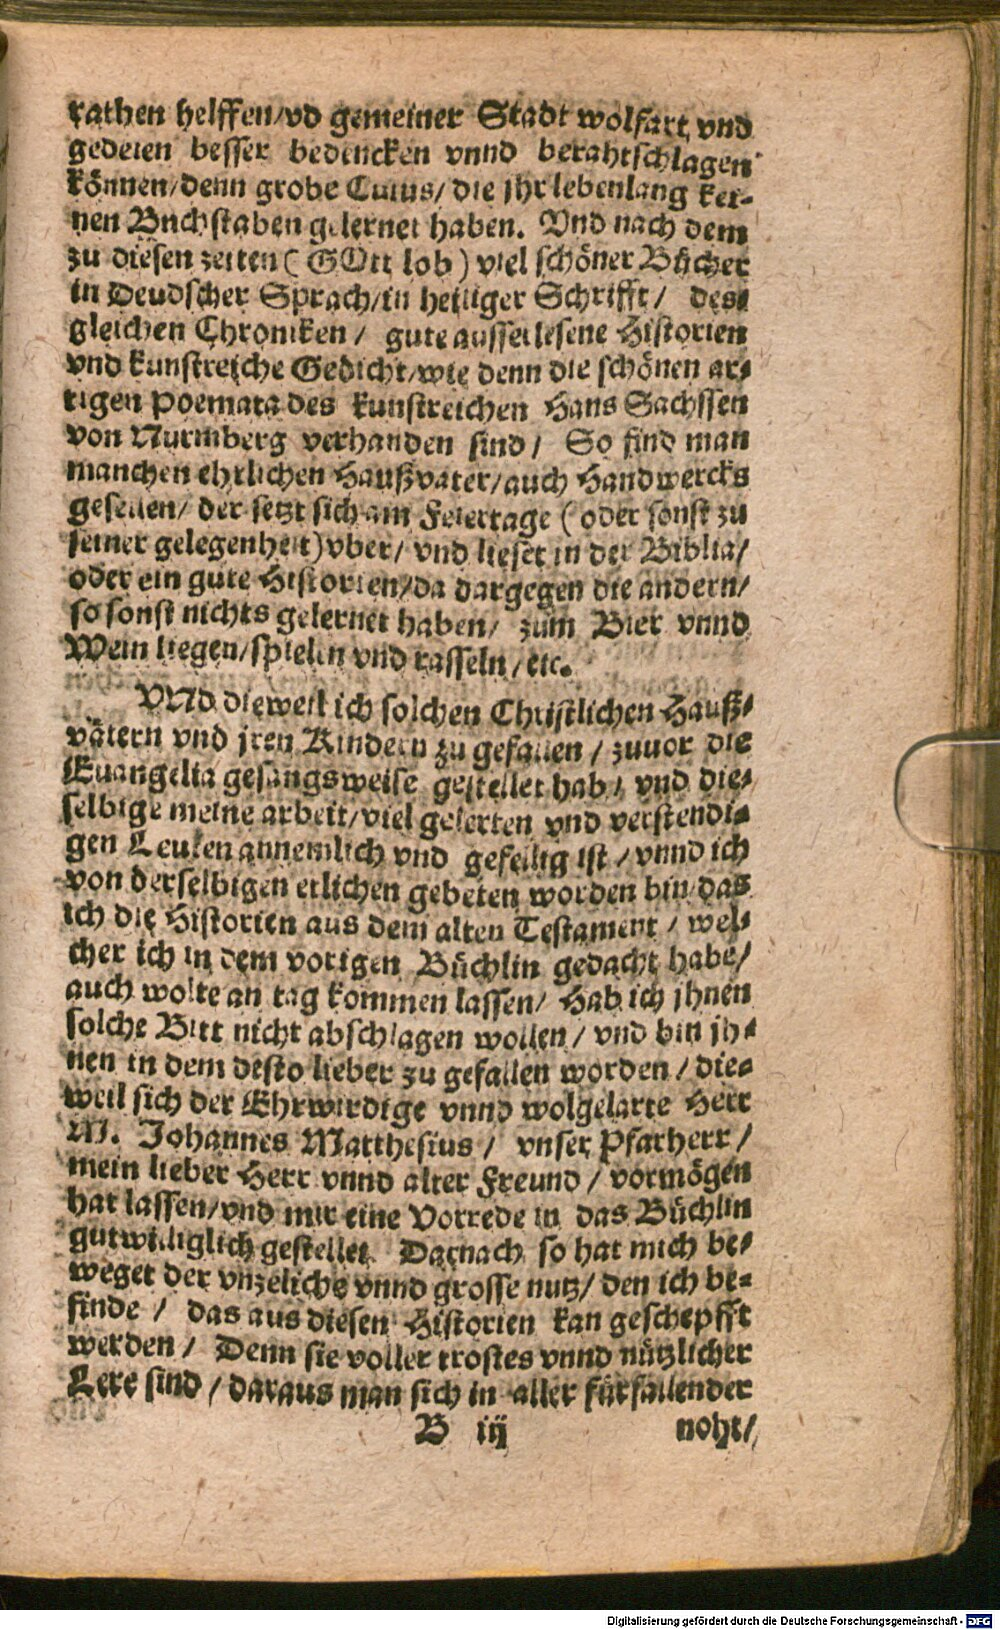 rathen helffen/vd gemeiner Stadt wolfart vnd
gedeien besser bedencken vnnd berahtschlagen
können/denn grobe Cuius/die jhr lebenlang kei-
nen Buchstaben gelernet haben. Vnd nach dem
zu diesen zeiten (GOtt lob) viel schöner Bücher
in Deudscher Sprach/in heiliger Schrifft/ des-
gleichen Chroniken/ gute ausserlesene Historien
vnd kunstreiche Gedicht/wie denn die schönen ar-
tigen Poemata des kunstreichen Hans Sachssen
von Nurmberg verhanden sind/ So find man
manchen ehrlichen Haußvater/auch Handwercks
gesellen/ der setzt sich am Feiertage (oder sonst zu
seiner gelegenheit) vber/ vnd lieset in der Biblia/
oder ein gute Historien/da dargegen die andern/
so sonst nichts gelernet haben/ zum Bier vnnd
Wein liegen/spielen vnd rasseln/etc.
VND dieweil ich solchen Christlichen Hauß-
vätern vnd jren Kindern zu gefallen/zuuor die
Euangelia gesangsweise gestellet hab/ vnd die-
selbige meine arbeit/viel gelerten vnd verstendi-
gen Leuten annemlich vnd gefellig ist/vnnd ich
von derselbigen etlichen gebeten worden bin das
ich die Historien aus dem alten Testament/ wel-
cher ich in dem vorigen Büchlin gedacht habe/
auch wolte an tag kommen lassen/ Hab ich jhnen
solche Bitt nicht abschlagen wollen/ vnd bin jh-
nen in dem desto lieber zu gefallen worden/die-
weil sich der Ehrwirdige vnnd wolgelarte Herr
M. Johannes Matthesius/ vnser Pfarherr/
mein lieber Herr vnnd alter Freund/vormögen
hat lassen/vnd mir eine Vorrede in das Büchlin
gutwilliglich gestellet Darnach so hat mich be-
weget der vnzeliche vnnd grosse nutz/ den ich be-
finde/ das aus diesen Historien kan geschepfft
werden/ Denn sie voller trostes vnnd nützlicher
Lere sind/daraus man sich in aller fürfallender
B iij noht/
Digitalisierung gefördert durch die Deutsche Forschungsgemeinschaft - DFG